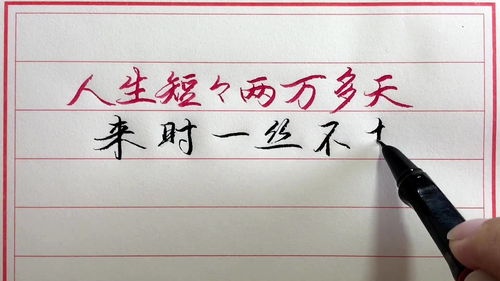 人生短々两万多天
来时一丝不